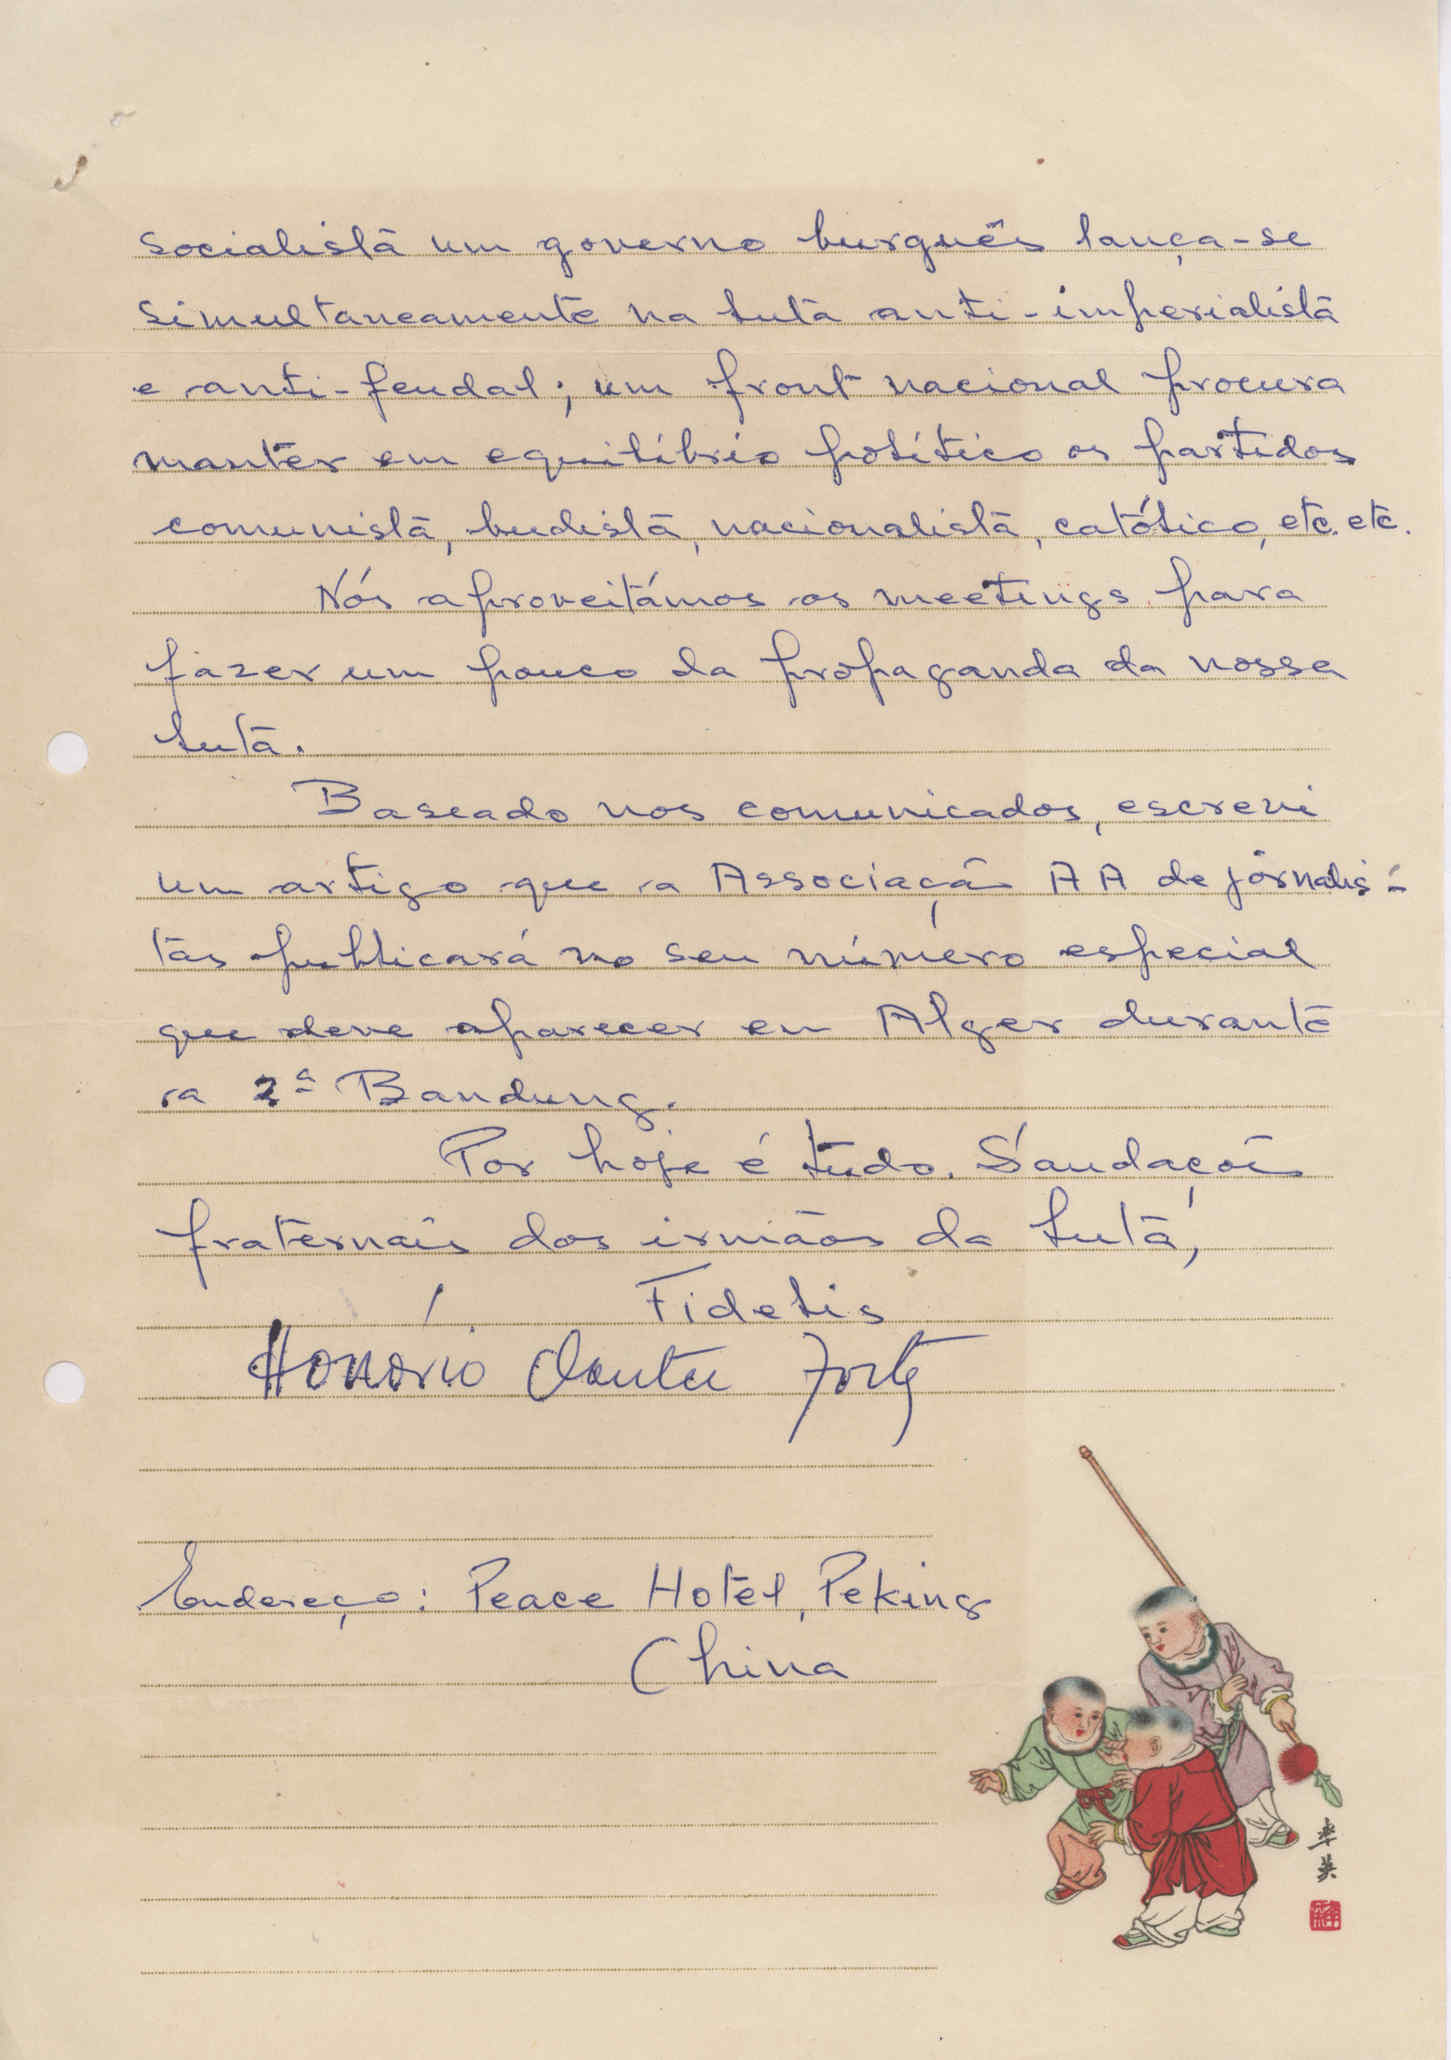 socialista um governo burguês lança-se
simultaneamente na luta anti-imperialista
e anti-feudal; um front nacional procura
manter em equilíbrio político os partidos
comunista, budista, nacionalista, católico, etc. etc.
Nós aproveitámos os meetings para
fazer um pouco da propaganda da nossa
luta.
Baseado nos comunicados, escrevi
um artigo que a Associação AA de jornalis-
tas publicará no seu número especial
que deve aparecer en Alger durante
a 2ª Bandung.
Por hoje é tudo. Saudações
fraternais dos irmãos da luta,
Fidelis
Honório Chantre Fortes
Endereço: Peace Hotel, Peking
China
英